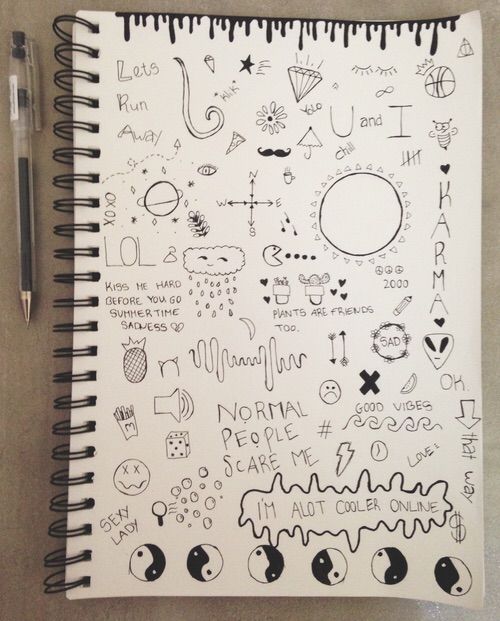 Lets
Run
Away
*WiK*
YOLO
U and I
chill
XOXO
N
W E
S
KARMA
LOL
KISS ME HARD
BEFORE YOU GO
SUMMERTIME
SADNESS
PLANTS ARE FRIENDS
TOO.
2000
SAD
OK.
that way
GOOD VIBES
#
NORMAL
PEOPLE
SCARE ME
LOVE:
I'M ALOT COOLER ONLINE
SEXY
LADY
$